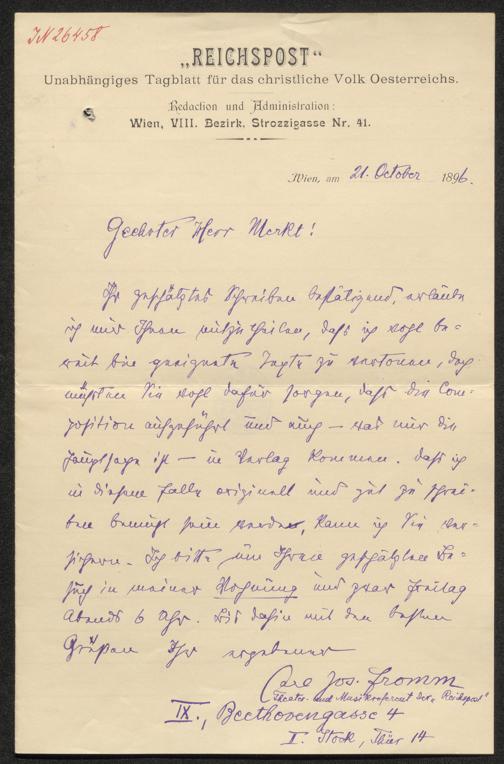 IN 26458
„REICHSPOST“
Unabhängiges Tagblatt für das christliche Volk Oesterreichs.
Redaction und Administration:
Wien, VIII. Bezirk, Strozzigasse Nr. 41.
Wien, am 21. October 1896.
Geehrter Herr Merkt!
Ihr geschätztes Schreiben bestätigend, erlaube
ich mir Ihnen mitzutheilen, daß ich wohl be-
reit bin geeignete Texte zu vertonen, doch
müßten Sie wohl dafür sorgen, daß die Com-
position aufgeführt und auch – was mir die
Hauptsache ist – in Verlag kommen. Daß ich
in diesem Falle originell und gut zu schrei-
ben bemüht sein werde, kann ich Sie ver-
sichern. Ich bitte um Ihren geschätzten Be-
such in meiner Wohnung und zwar Freitag
Abends 6 Uhr. Bis dahin mit den besten
Grüßen Ihr ergebener
Carl Jos. Fromm
Theater- und Musikreferent der „Reichspost“
IX., Beethovengasse 4
I. Stock, Thür 14